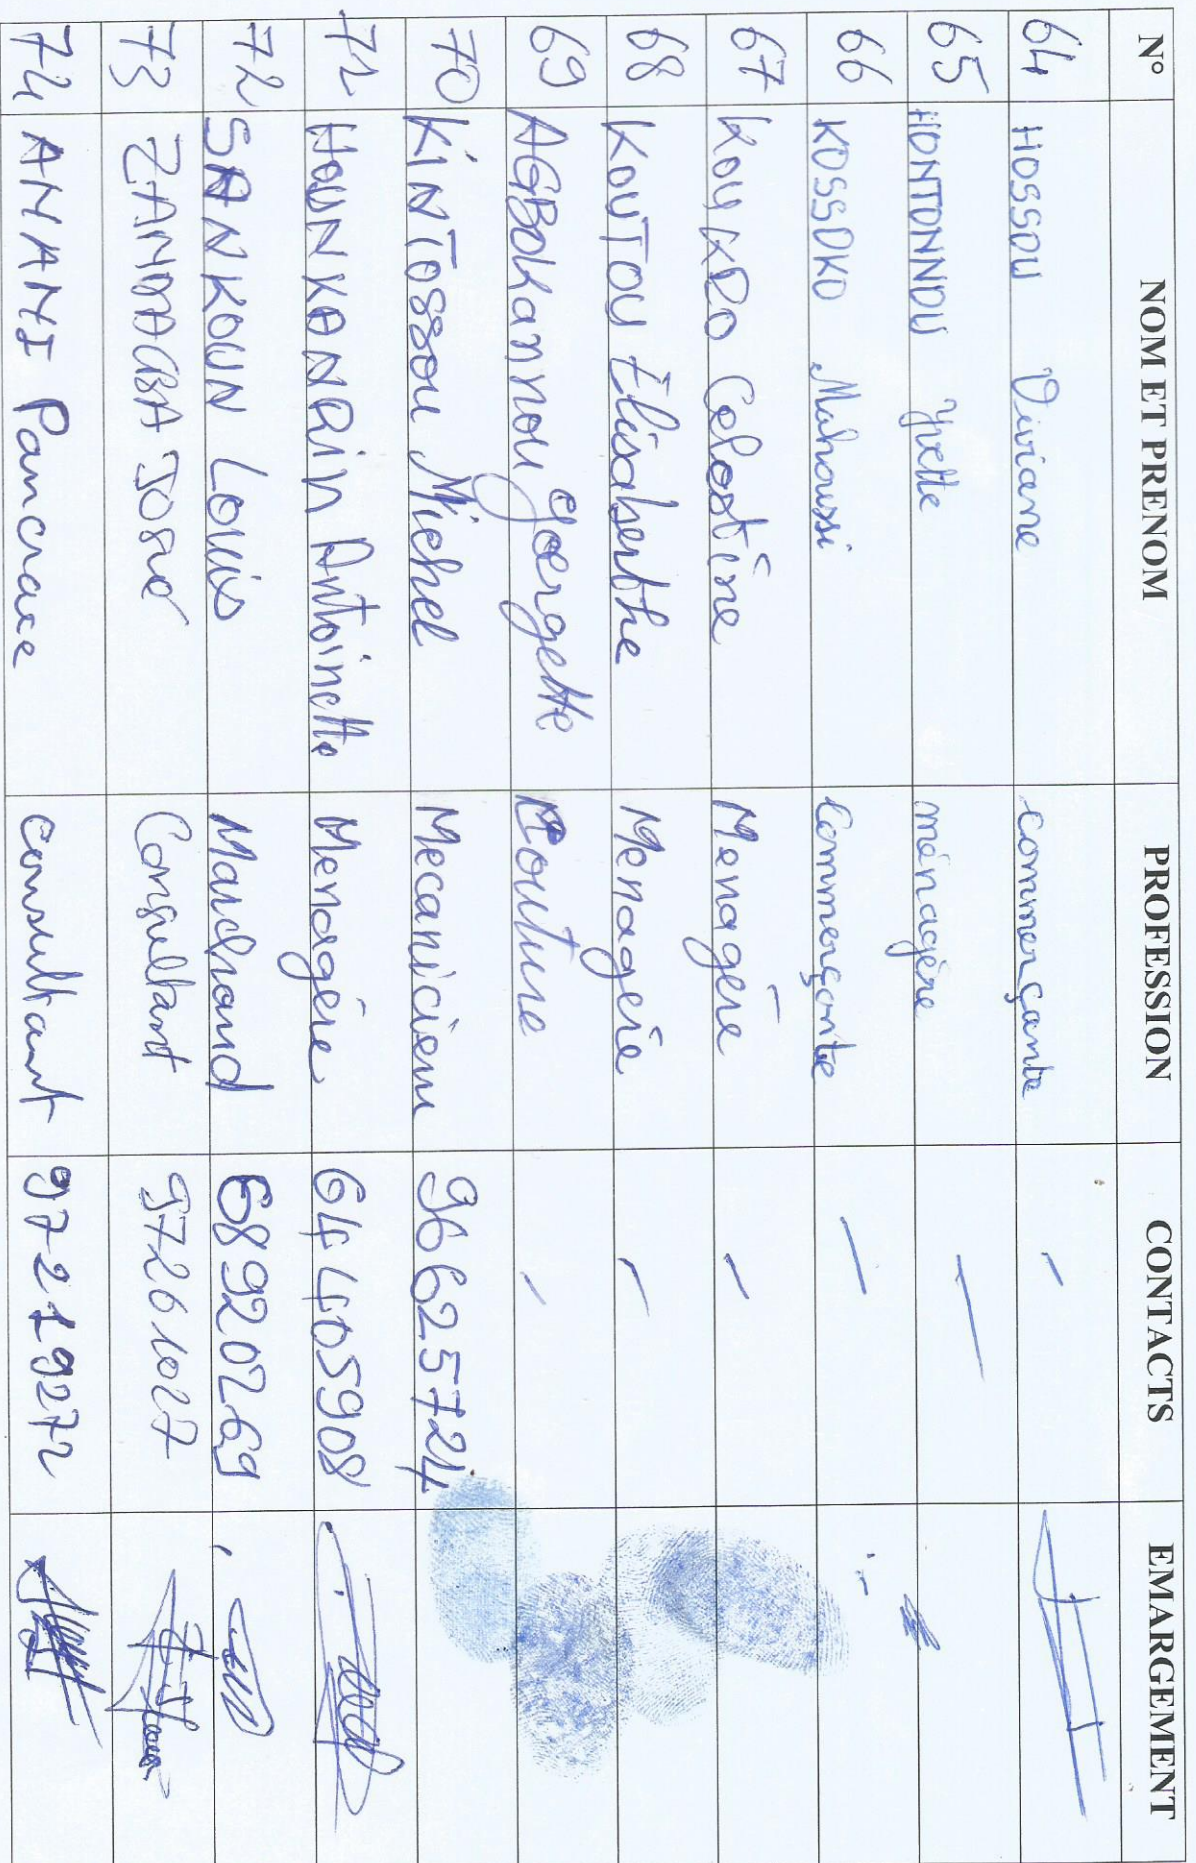 N° NOM ET PRENOM PROFESSION CONTACTS EMARGEMENT
64 HOSSOU Viviane commerçante -
65 HONTONNOU Yvette ménagère -
66 KOSSOKO Mahoussi Commerçante -
67 Celestine Menagère -
68 KOUTOU Elisaberthe Menagère -
69 AGBOKannou goergette Couture -
70 KiNTossou Michel Mecanicien 96625724
71 HOUNKANRIN Antoinette Menagère 64405908
72 SANKOUN Louis Marchand 68920269
73 José Consultant 97261027
74 Pancrace Consultant 97219272